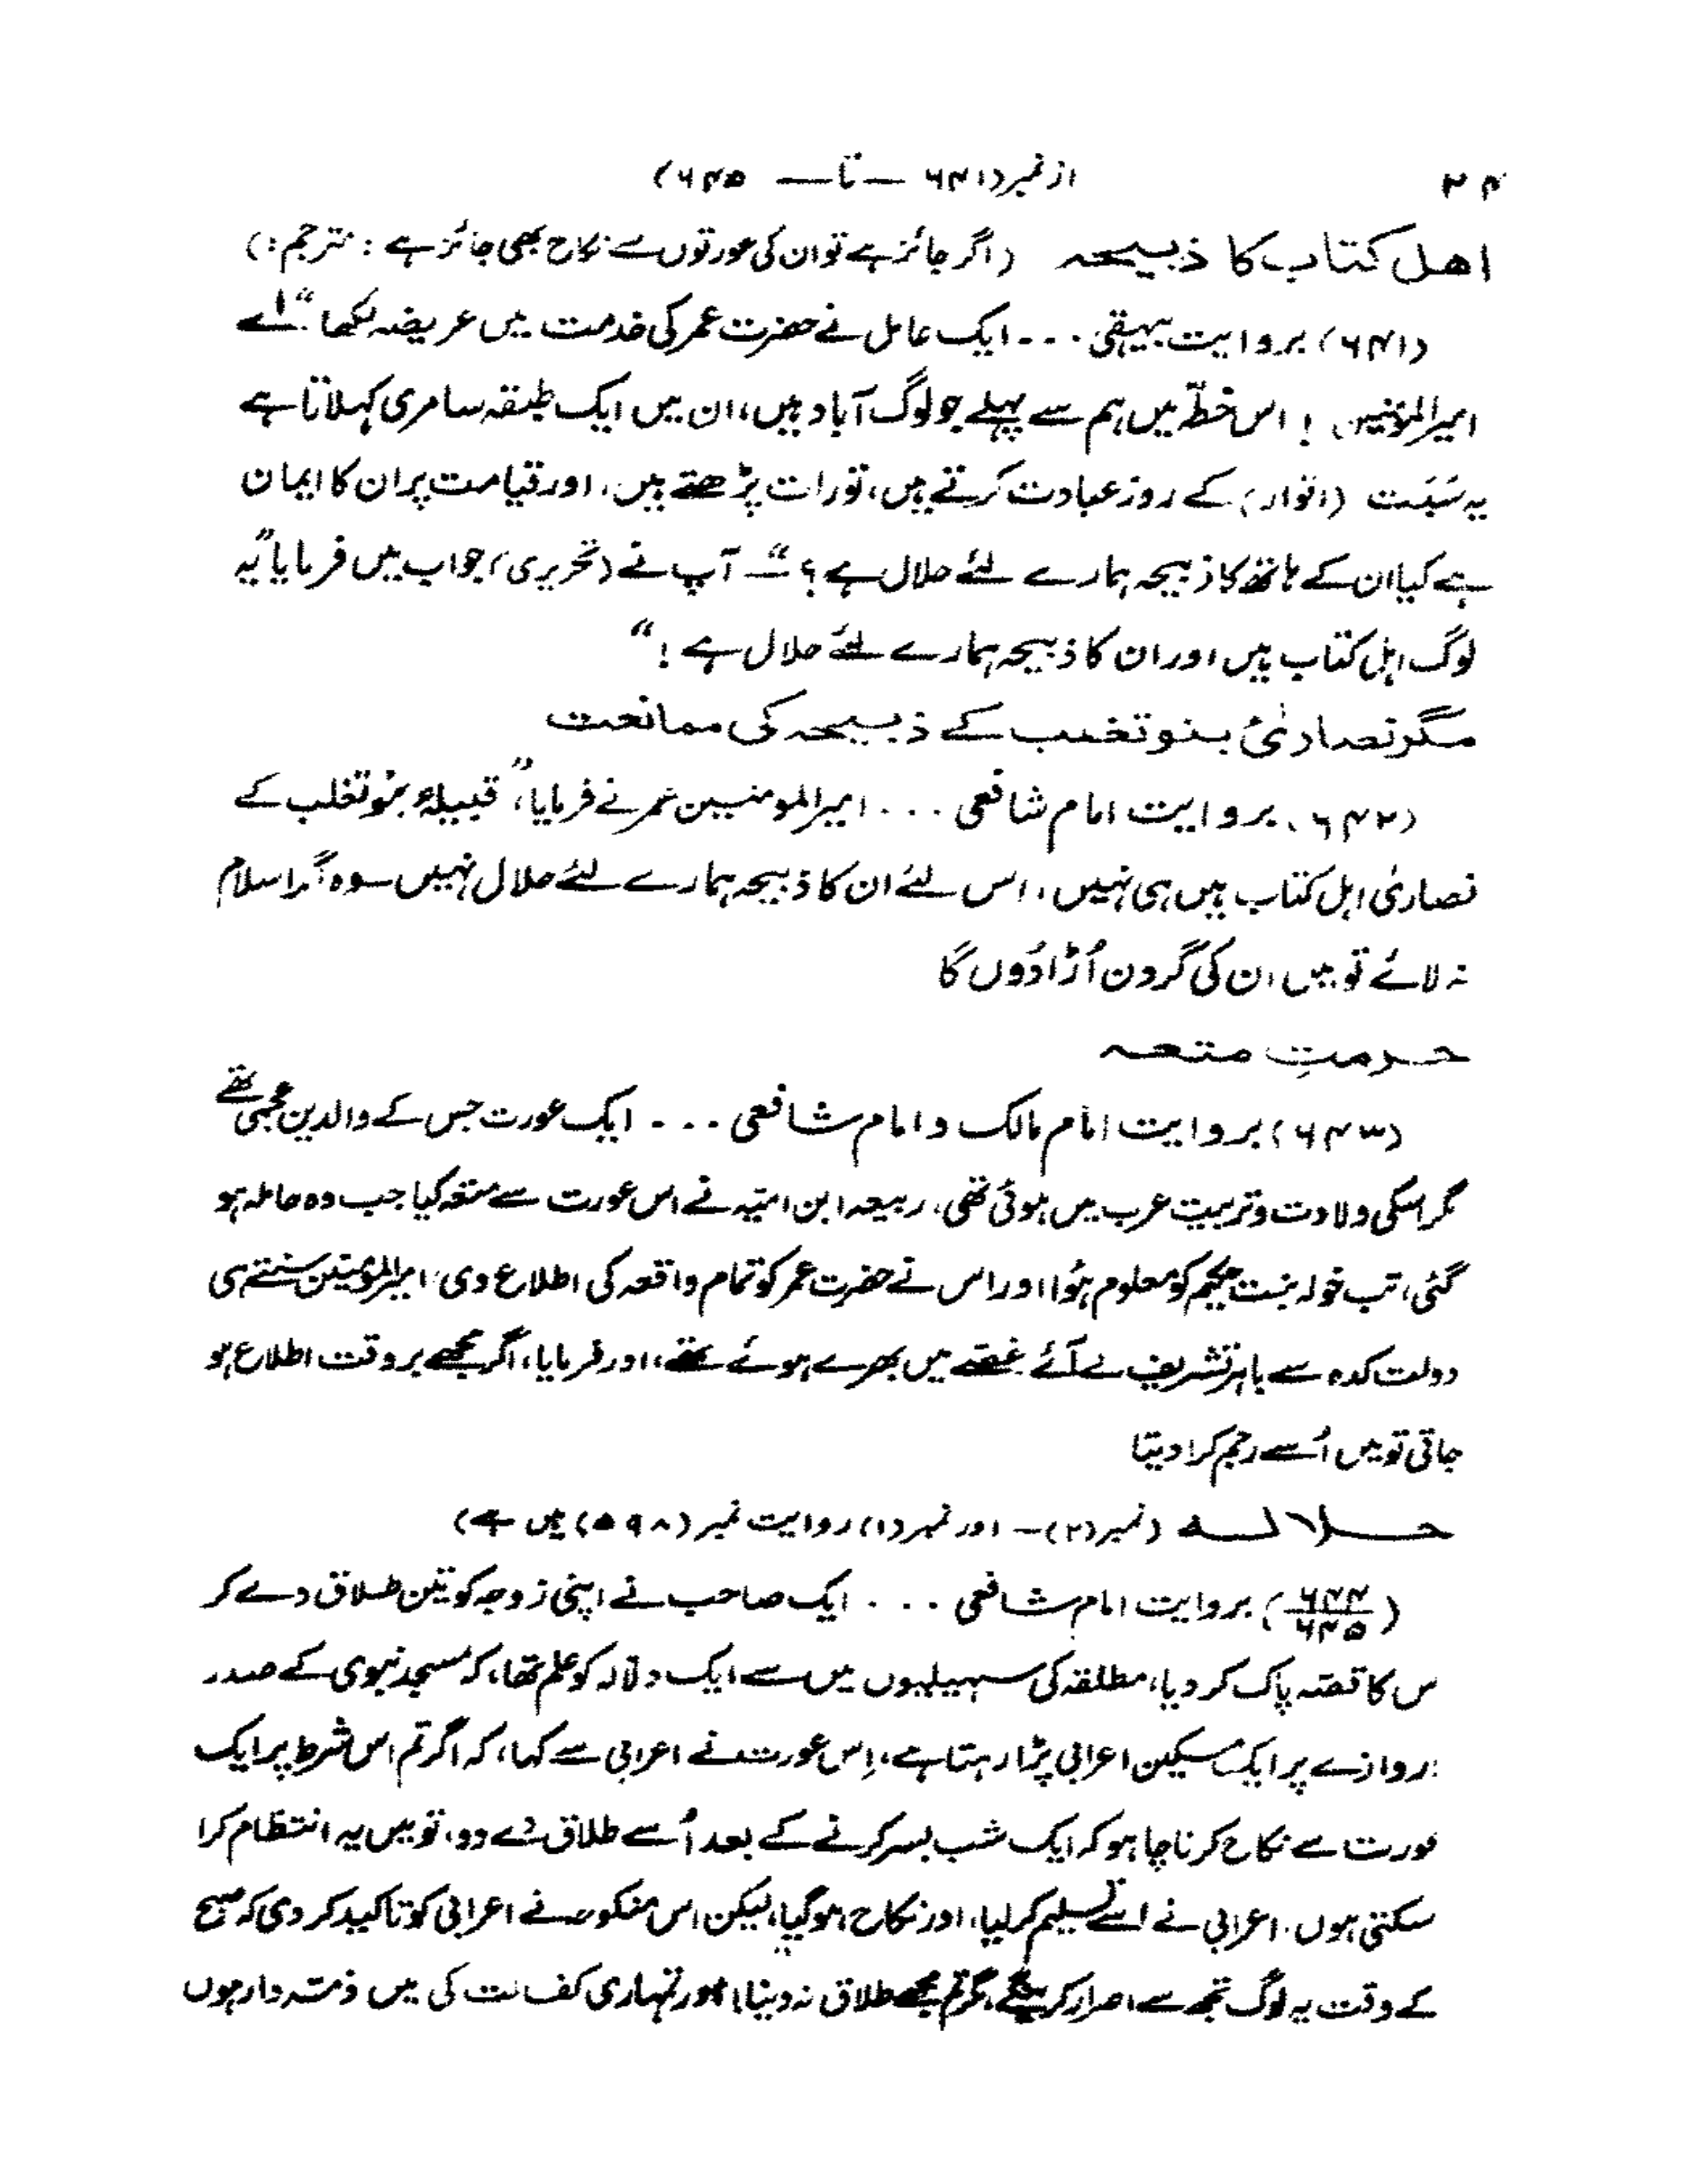 ۲۴
از نمبر (۶۴۱ — تا — ۶۴۵)
اهل کتاب کا ذبیحہ (اگر جائز ہے تو ان کی عورتوں سے نکاح بھی جائز ہے : مترجم :)
(۶۴۱) بروایت بیہقی ۔۔۔ ایک عامل نے حضرت عمر کی خدمت میں عریضہ لکھا "اے
امیرالمؤمنین ! اس خطّہ میں ہم سے پہلے جو لوگ آباد ہیں، ان میں ایک طبقہ سامری کہلاتا ہے
یہ سَبَت (اتوار) کے روز عبادت کرتے ہیں، تورات پڑھتے ہیں، اور قیامت پر ان کا ایمان
ہے کیا ان کے ہاتھ کا ذبیحہ ہمارے لئے حلال ہے؟" — آپ نے (تحریری) جواب میں فرمایا "یہ
لوگ اہل کتاب ہیں اور ان کا ذبیحہ ہمارے لئے حلال ہے !"
مگر نصارٰئ بنو تغلب کے ذبیحہ کی ممانعت
(۶۴۲) بروایت امام شافعی ۔۔۔ امیرالمومنین عمر نے فرمایا، "قبیلۂ بنو تغلب کے
نصاریٰ اہل کتاب ہیں ہی نہیں، اس لئے ان کا ذبیحہ ہمارے لئے حلال نہیں سو وہ اگر اسلام
نہ لائے تو میں ان کی گردن اُڑا دُوں گا
حرمتِ متعہ
(۶۴۳) بروایت امام مالک و امام شافعی ۔۔۔ ایک عورت جس کے والدین عجمی تھے
مگر اسکی ولادت و تربیت عرب میں ہوئی تھی، ربیعہ ابن امیّہ نے اس عورت سے متعہ کیا جب وہ حاملہ ہو
گئی، تب خولہ بنت حکیم کو معلوم ہُوا اور اس نے حضرت عمر کو تمام واقعہ کی اطلاع دی، امیرالمؤمنین سنتے ہی
دولت کدہ سے باہر تشریف لے آئے غصّے میں بھرے ہوئے تھے، اور فرمایا، اگر مجھے بروقت اطلاع ہو
جاتی تو میں اُسے رجم کرا دیتا
حلالہ (نمبر (۲) – اور نمبر (۱) روایت نمبر (۵۹۸) میں ہے)
(۶۴۴/۶۴۵) بروایت امام شافعی ۔۔۔ ایک صاحب نے اپنی زوجہ کو تین طلاق دے کر
س کا قصّہ پاک کر دیا، مطلقہ کی سہیلیوں میں سے ایک دلّالہ کو علم تھا، کہ مسجد نبوی کے صدر
دروازے پر ایک مسکین اعرابی پڑا رہتا ہے، اِس عورت نے اعرابی سے کہا، کہ اگر تم اس شرط پر ایک
عورت سے نکاح کرنا چاہو کہ ایک شب بسر کرنے کے بعد اُسے طلاق دے دو، تو میں یہ انتظام کرا
سکتی ہوں۔ اعرابی نے اسے تسلیم کر لیا، اور نکاح ہو گیا، لیکن اس منکوحہ نے اعرابی کو تاکید کر دی کہ صبح
کے وقت یہ لوگ تجھ سے اصرار کریں گے، مگر تم مجھے طلاق نہ دینا، اور تمہاری کفالت کی میں ذمّہ دار ہوں